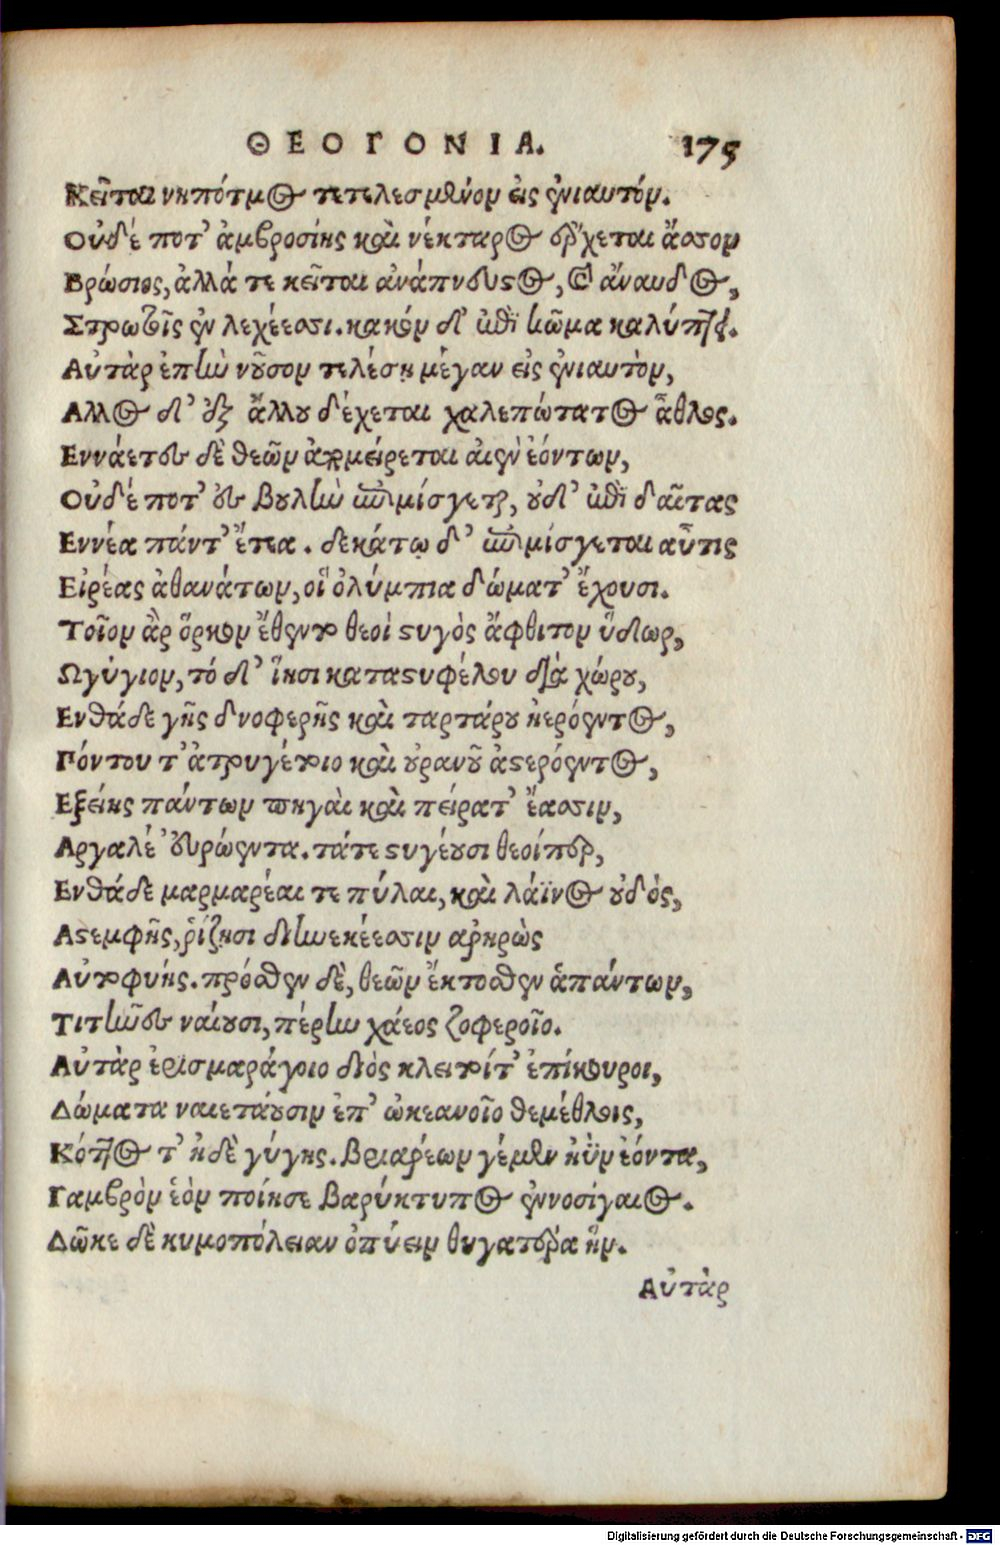 ΘΕΟΓΟΝΙΑ. 175
Κεῖται νηπότμος τετελεσμένον εἰς ἐνιαυτόν.
Οὐδέ ποτ' ἀμβροσίης καὶ νέκταρος ἔρχεται ἄσσον
Βρώσιος, ἀλλά τε κεῖται ἀνάπνευστος, καὶ ἄναυδος,
Στρωτοῖς ἐν λεχέεσσι. κακὸν δ' ἐπὶ κῶμα καλύπτει.
Αὐτὰρ ἐπὴν νοῦσον τελέσῃ μέγαν εἰς ἐνιαυτὸν,
Αλλος δ' ἐξ ἄλλου δέχεται χαλεπώτατος ἆθλος.
Εννάετες δὲ θεῶν ἀπομείρεται αἰὲν ἐόντων,
Οὐδέ ποτ' ἐς βουλὴν ἐπιμίσγεται, οὐδ' ἐπὶ δαῖτας
Εννέα πάντ' ἔτεα. δεκάτῳ δ' ἐπιμίσγεται αὖτις
Εἰρέας ἀθανάτων, οἳ ὀλύμπια δώματ' ἔχουσι.
Τοῖον ἂρ ὅρκον ἔθεντο θεοὶ στυγὸς ἄφθιτον ὕδωρ,
Ωγύγιον, τό δ' ἵησι καταστυφέλου διὰ χώρου,
Ενθάδε γῆς δνοφερῆς καὶ ταρτάρου ἠερόεντος,
Πόντου τ' ἀτρυγέτοιο καὶ οὐρανοῦ ἀστερόεντος,
Εξείης πάντων πηγαὶ καὶ πείρατ' ἔασσιν,
Αργαλέ' εὐρώεντα. τάτε στυγέουσι θεοίπερ,
Ενθάδε μαρμαρέαι τε πύλαι, καὶ λάϊνος οὐδὸς,
Αστεμφῆς, ῥίζῃσι διηνεκέεσσιν ἀρηρὼς
Αὐτοφυής. πρόσθεν δὲ, θεῶν ἔκτοσθεν ἁπάντων,
Τιτῆνες ναίουσι, πέρην χάεος ζοφεροῖο.
Αὐτὰρ ἐρισμαράγοιο διὸς κλειτοίτ' ἐπίκουροι,
Δώματα ναιετάουσιν ἐπ' ὠκεανοῖο θεμέθλοις,
Κόττος τ' ἠδὲ γύγης. Βριαρέων γέμεν ἠῢν ἐόντα,
Γαμβρὸν ἑὸν ποίησε βαρύκτυπος ἐννοσίγαιος.
Δῶκε δὲ κυμοπόλειαν ὀπύειν θυγατέρα ἥν.
Αὐτὰρ
Digitalisierung gefördert durch die Deutsche Forschungsgemeinschaft - DFG